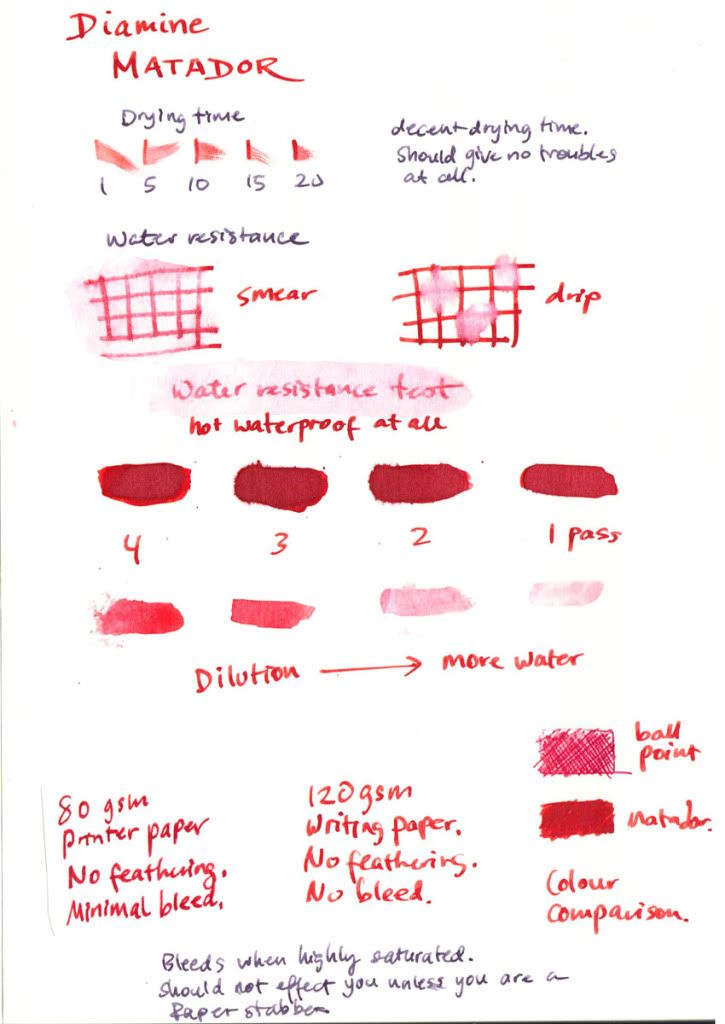 Diamine
MATADOR
Drying time
1 5 10 15 20
decent drying time.
Should give no troubles
at all.
Water resistance
smear
drip
Water resistance test
not waterproof at all
4 3 2 1 pass
Dilution → more water
ball
point
Matador.
Colour
comparison.
80 gsm
printer paper
No feathering.
Minimal bleed.
120gsm
writing paper.
No feathering.
No bleed.
Bleeds when highly saturated.
should not effect you unless you are a
Paper stabber